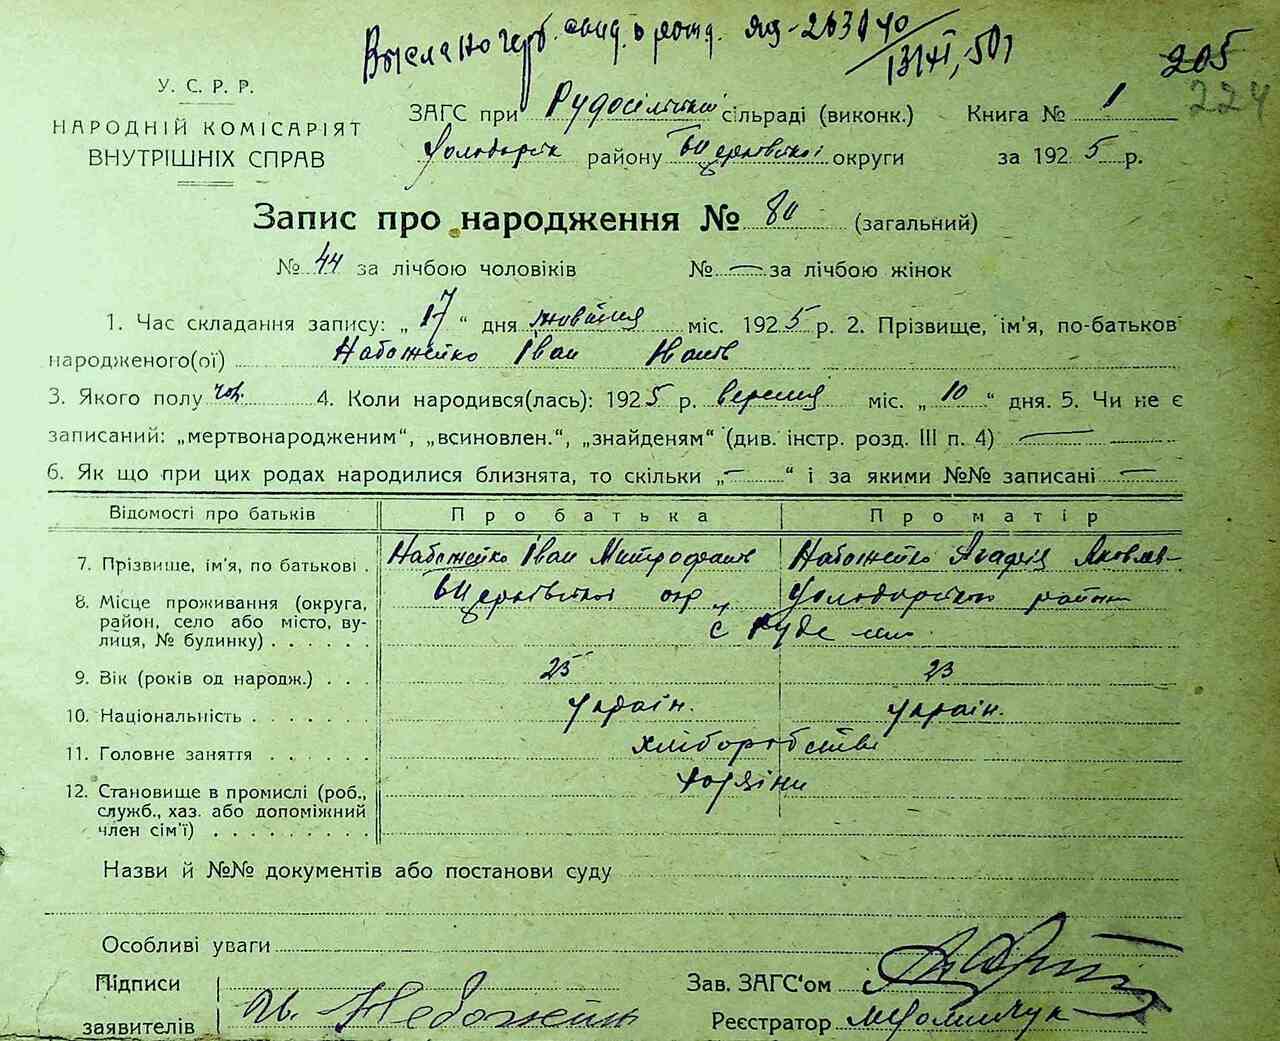 Выслано герб. свид. о рожд. ЯЦ-263040
13/VI, 50 г
205
224
У. С. Р. Р.
НАРОДНІЙ КОМІСАРІЯТ
ВНУТРІШНІХ СПРАВ
ЗАГС при Рудосільській сільраді (виконк.) Книга № 1
Володарськ району БЦерківської округи за 1925 р.
Запис про народження № 80 (загальний)
№ 44 за лічбою чоловіків № — за лічбою жінок
1. Час складання запису: „ 17 “ дня жовтня міс. 1925 р. 2. Прізвище, ім'я, по-батьков
народженого(ої) Набожейко Іван Іванів
3. Якого полу чол. 4. Коли народився(лась): 1925 р. вересня міс. „ 10 “ дня. 5. Чи не є
записаний: „мертвонародженим“, „всиновлен.“, „знайденям“ (див. інстр. розд. III п. 4) —
6. Як що при цих родах народилися близнята, то скільки „—“ і за якими №№ записані —
Відомості про батьків Про батька Про матір
7. Прізвище, ім'я, по батькові . Набожейко Іван Митрофанів Набожейко Агафія Яковлів
8. Місце проживання (округа, БЦерківської окр Володарського району
район, село або місто, ву- с Руде село
лиця, № будинку) . . . . . .
9. Вік (років од народж.) . . . 25 23
10. Національність . . . . . . . Україн. Україн.
11. Головне заняття . . . . . . хліборобство
12. Становище в промислі (роб., хазяїни
служб., хаз. або допоміжний
член сім'ї) . . . . . . . . .
Назви й №№ документів або постанови суду
Особливі уваги
Підписи Зав. ЗАГС'ом
заявителів Ив. Небожейк Реєстратор